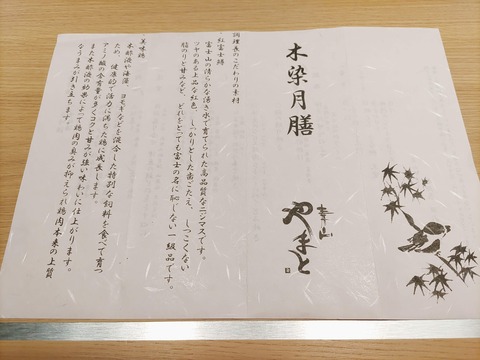 木染月膳
幸山
やまと
調理長のこだわりの素材
紅富士鱒
富士山の清らかな湧き水で育てられた高品質なニジマスです。
ツヤのある上品な紅色、しっかりとした歯ごたえ、しつこくない
脂のりと甘みなど、どれをとっても富士の名に恥じない一級品です。
美味鶏
木酢液や海藻、ヨモギなどを混合した特別な飼料を食べて育つ
ため、健康的で活力に満ちた鶏に成長します。
アミノ酸の含有量が多くコクと甘みが強い味わいに仕上がります。
また木酢液の効果によって鶏肉の臭みが抑えられ鶏肉本来の上質
なうまみが引き立ちます。